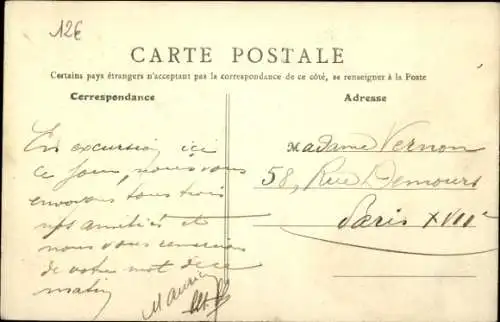 12€
CARTE POSTALE
Certains pays étrangers n'acceptant pas la correspondance de ce côté, se renseigner à la Poste
Correspondance
Adresse
En excursion ici
ce jour, nous vous
envoyons tous trois
nos amitiés et
nous vous remercions
de votre mot de ce
matin
Maurice
Madame Vernon
58, Rue Demours
Paris XVIIe